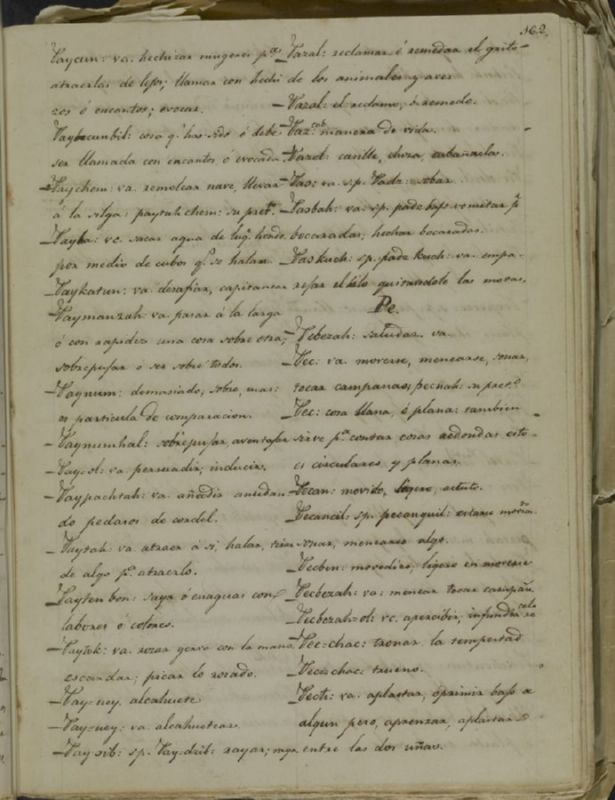 162.
Paycun: va. hechizar mugeres pª
atraerlas de lejos; llamar con hechi
zos ó encantos; evocar.
Paybecunbil: cosa q.e ha sido ó debe
ser llamada con encantos ó evocada.
Paychem: va. remolcar nave, llevar
á la silga: paytah chem: su pret.º
Payha: vc. sacar agua de lug.r hondo
por medio de cubos q.e se halan.
Paykatun: va. desafiar, capitanear
Paymanzah: va. pasar á la larga
ó con rapidez una cosa sobre otra,
sobrepujar ó ser sobre todos.
Paynum: demasiado, sobre, mas:
es particula de comparacion.
Paynumhal: sobrepujar, aventajar
Pay-ol: va. persuadir, inducir.
Paypachtah: va. añadir anudan
do pedazos de cordel.
Paytah: va. atraer á si, halar, tirar
de algo p.ª atraerlo.
Payten bon: saya ó enaguas con
labores ó colores.
Paytok: va. rozar yerva con la mano
escardar; picar lo rozado.
Pay-ney alcahuete
Pay-ney: va. alcahuetear.
Pay-dib: sp. Pay-dzib: rayar;
Pazal: reclamar ó remedar el grito
de los animales y aves
Pazal: el reclamo, ó remedo.
manera de vida.
va. sp.
Pasbah: va. sp. vomitar p.r
bocaradas; hechar bocaradas.
Paskuch: sp. kuch: va.
el hilo quitandole las motas.
Pe.
Pebezah: saludar. va.
Pec: va. moverse, menearse, sonar,
tocar campanas; pecnah: su pret.º
Pec: cosa llana, ó plana: tambien
sirve p.ª contar cosas redondas esto
es circulares y planas.
Pecan: movido, ligero, astuto.
Pecancil: sp. pecanquil: estarse movien.do
sonar, menearse algo.
Pecben: movedizo, ligero en moverse
Pecbezah: va. menear tocar campan.s
Pecbezah-ol: vc. apercibir, infundir
Pec-chac: tronar la tempestad
Pec-chac: trueno.
Pech: va. aplastar, oprimir bajo de
algun peso, aprensar, aplastar
entre las dos uñas.